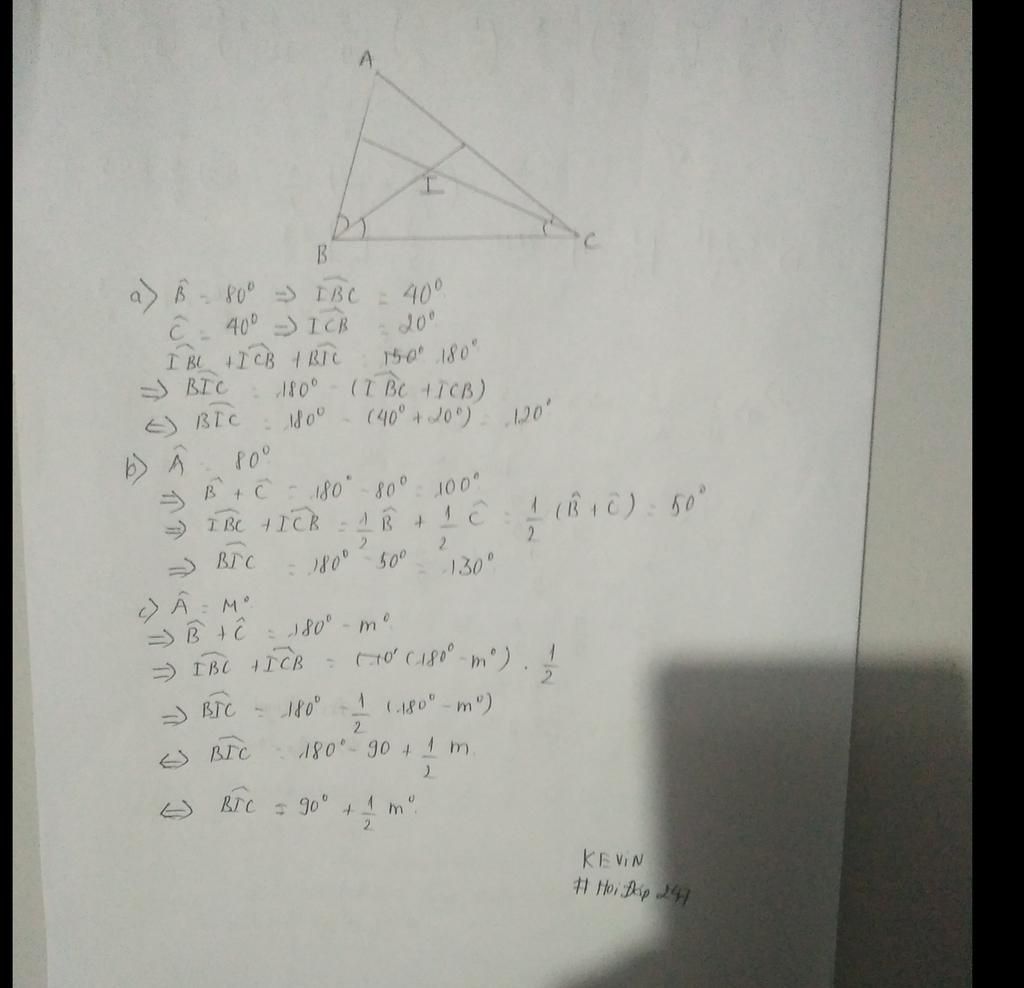 A
I
B
C
a) B̂ = 80° => IB̂C = 40°
Ĉ = 40° => IĈB = 20°
IB̂C + IĈB + BÎC = 180°
=> BÎC = 180° - (IB̂C + ICB)
<=> BÎC = 180° - (40° + 20°) = 120°
b) Â = 80°
=> B̂ + Ĉ = 180° - 80° = 100°
=> IB̂C + IĈB = 1/2 B̂ + 1/2 Ĉ = 1/2 (B̂ + Ĉ) = 50°
=> BÎC = 180° - 50° = 130°
c) Â = M°
=> B̂ + Ĉ = 180° - m°
=> IB̂C + IĈB = (180° - m°) . 1/2
=> BÎC = 180° - 1/2 (180° - m°)
<=> BÎC = 180° - 90 + 1/2 m
<=> BÎC = 90° + 1/2 m°.
KEViN
# Hoi Dap 247